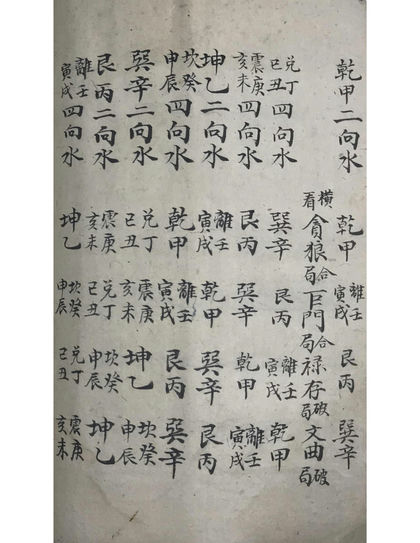 乾甲二向水 乾甲 離壬寅戌 艮丙 巽辛
橫看 貪狼合局 巨門合局 祿存破局 文曲破局
兌丁己丑四向水 巽辛 艮丙 離壬寅戌 乾甲
震庚亥未四向水 艮丙 巽辛 乾甲 離壬寅戌
坤乙二向水 離壬寅戌 乾甲 巽辛 艮丙
坎癸申辰四向水 乾甲 離壬寅戌 艮丙 巽辛
巽辛二向水 兌丁己丑 震庚亥未 坤乙 坎癸申辰
艮丙二向水 震庚亥未 兌丁己丑 坎癸申辰 坤乙
離壬寅戌四向水 坤乙 坎癸申辰 兌丁己丑 震庚亥未